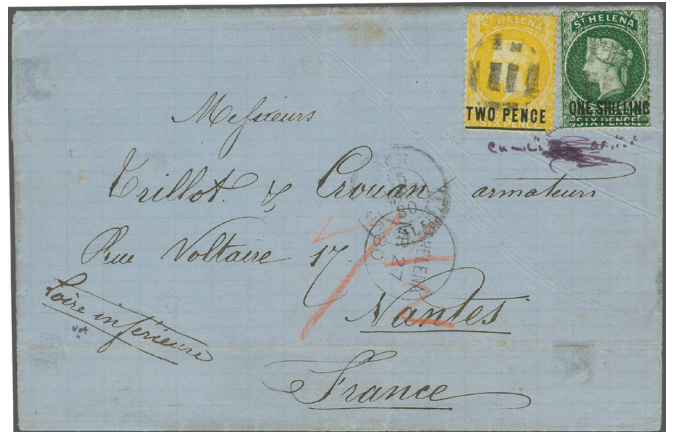 ST HELENA
TWO PENCE
SIX PENCE
ST HELENA
ONE SHILLING
SIX PENCE
Messieurs
Trillot & Crouan armateurs
Rue Voltaire 17
Nantes
Loire inférieure
France
HELENA
27
80